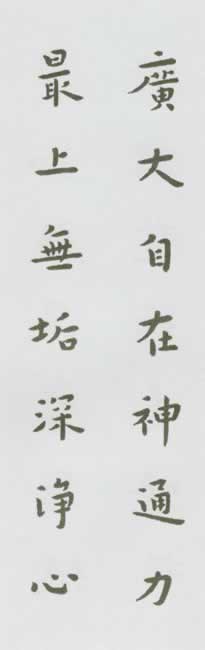 廣大自在神通力
最上無垢深淨心